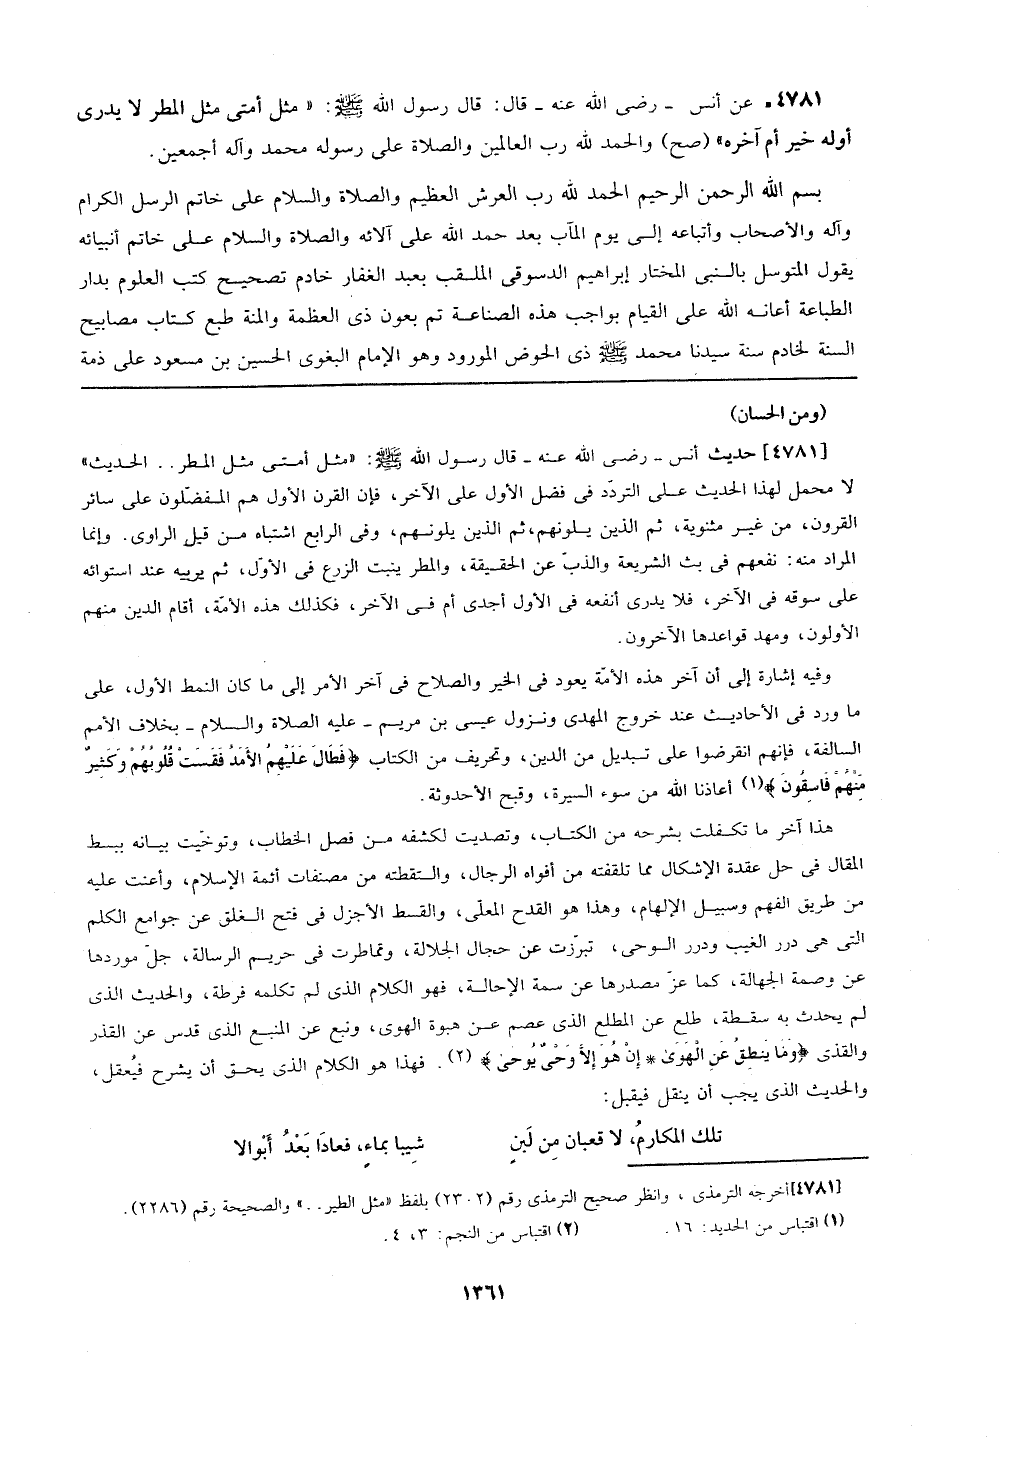 ٤٧٨١. عن أنس ـ رضى الله عنه ـ قال: قال رسول الله ﷺ: « مثل أمتى مثل المطر لا يدرى
أوله خير أم آخره» (صح) والحمد لله رب العالمين والصلاة على رسوله محمد وآله أجمعين.
بسم الله الرحمن الرحيم الحمد لله رب العرش العظيم والصلاة والسلام على خاتم الرسل الكرام
وآله والأصحاب وأتباعه إلى يوم المآب بعد حمد الله على آلائه والصلاة والسلام على خاتم أنبيائه
يقول المتوسل بالنبى المختار إبراهيم الدسوقى الملقب بعبد الغفار خادم تصحيح كتب العلوم بدار
الطباعة أعانه الله على القيام بواجب هذه الصناعة تم بعون ذى العظمة والمنة طبع كتاب مصابيح
السنة لخادم سنة سيدنا محمد ﷺ ذى الحوض المورود وهو الإمام البغوى الحسين بن مسعود على ذمة
(ومن الحسان)
[٤٧٨١] حديث أنس ـ رضى الله عنه ـ قال رسول الله ﷺ: «مثل أمتى مثل المطر.. الحديث»
لا محمل لهذا الحديث على التردّد فى فضل الأول على الآخر، فإن القرن الأول هم المفضّلون على سائر
القرون، من غير مثنوية، ثم الذين يلونهم،ثم الذين يلونهم، وفى الرابع اشتباه من قبل الراوى. وإنما
المراد منه: نفعهم فى بث الشريعة والذبّ عن الحقيقة، والمطر ينبت الزرع فى الأوّل، ثم يربيه عند استوائه
على سوقه فى الآخر، فلا يدرى أنفعه فى الأول أجدى أم فى الآخر، فكذلك هذه الأمّة، أقام الدين منهم
الأولون، ومهد قواعدها الآخرون.
وفيه إشارة إلى أن آخر هذه الأمّة يعود فى الخير والصلاح فى آخر الأمر إلى ما كان النمط الأول، على
ما ورد فى الأحاديث عند خروج المهدى ونزول عيسى بن مريم ـ عليه الصلاة والسلام ـ بخلاف الأمم
السالفة، فإنهم انقرضوا على تبديل من الدين، وتحريف من الكتاب ﴿فَطَالَ عَلَيْهِمُ الأَمَدُ فَقَسَتْ قُلُوبُهُمْ وَكَثِيرٌ
مِّنْهُمْ فَاسِقُونَ﴾(١) أعاذنا الله من سوء السيرة، وقبح الأحدوثة.
هذا آخر ما تكفلت بشرحه من الكتاب، وتصديت لكشفه من فصل الخطاب، وتوخّيت بيانه ببسط
المقال فى حل عقدة الإشكال مما تلقفته من أفواه الرجال، والتقطته من مصنفات أئمة الإسلام، وأعنت عليه
من طريق الفهم وسبيل الإلهام، وهذا هو القدح المعلّى، والقسط الأجزل فى فتح الغلق عن جوامع الكلم
التى هى درر الغيب ودرر الوحى، تبرّزت عن حجال الجلالة، وتماطرت فى حريم الرسالة، جلّ موردها
عن وصمة الجهالة، كما عزّ مصدرها عن سمة الإحالة، فهو الكلام الذى لم تكلمه فرطة، والحديث الذى
لم يحدث به سقطة، طلع عن المطلع الذى عصم عن هبوة الهوى، ونبع عن المنبع الذى قدس عن القذر
والقذى ﴿وَمَا يَنطِقُ عَنِ الْهَوَىٰ * إِنْ هُوَ إِلاَّ وَحْيٌ يُوحَىٰ﴾ (٢). فهذا هو الكلام الذى يحق أن يشرح فيُعقل،
والحديث الذى يجب أن ينقل فيقبل:
تلك المكارمُ، لا قعبان مِن لَبنٍ شِيبا بماءٍ، فعادَا بَعْدُ أَبْوالا
[٤٧٨١]أخرجه الترمذى ، وانظر صحيح الترمذى رقم (٢٣٠٢) بلفظ «مثل الطير..» والصحيحة رقم (٢٢٨٦).
(١) اقتباس من الحديد: ١٦. (٢) اقتباس من النجم: ٣، ٤.
١٣٦١